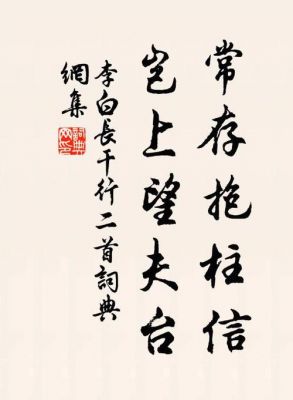 常存抱柱信
岂上望夫台
李白長干行二首詞典
網集